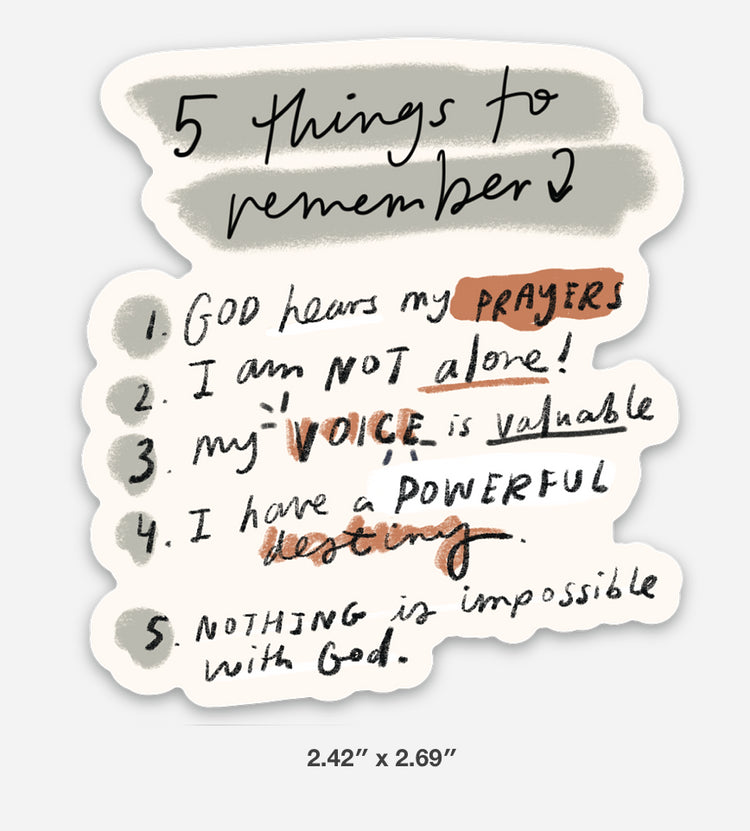 5 things to
remember
1. GOD hears my PRAYERS
2. I am NOT alone!
3. my VOICE is valuable
4. I have a POWERFUL
destiny.
5. NOTHING is impossible
with God.
2.42" x 2.69"